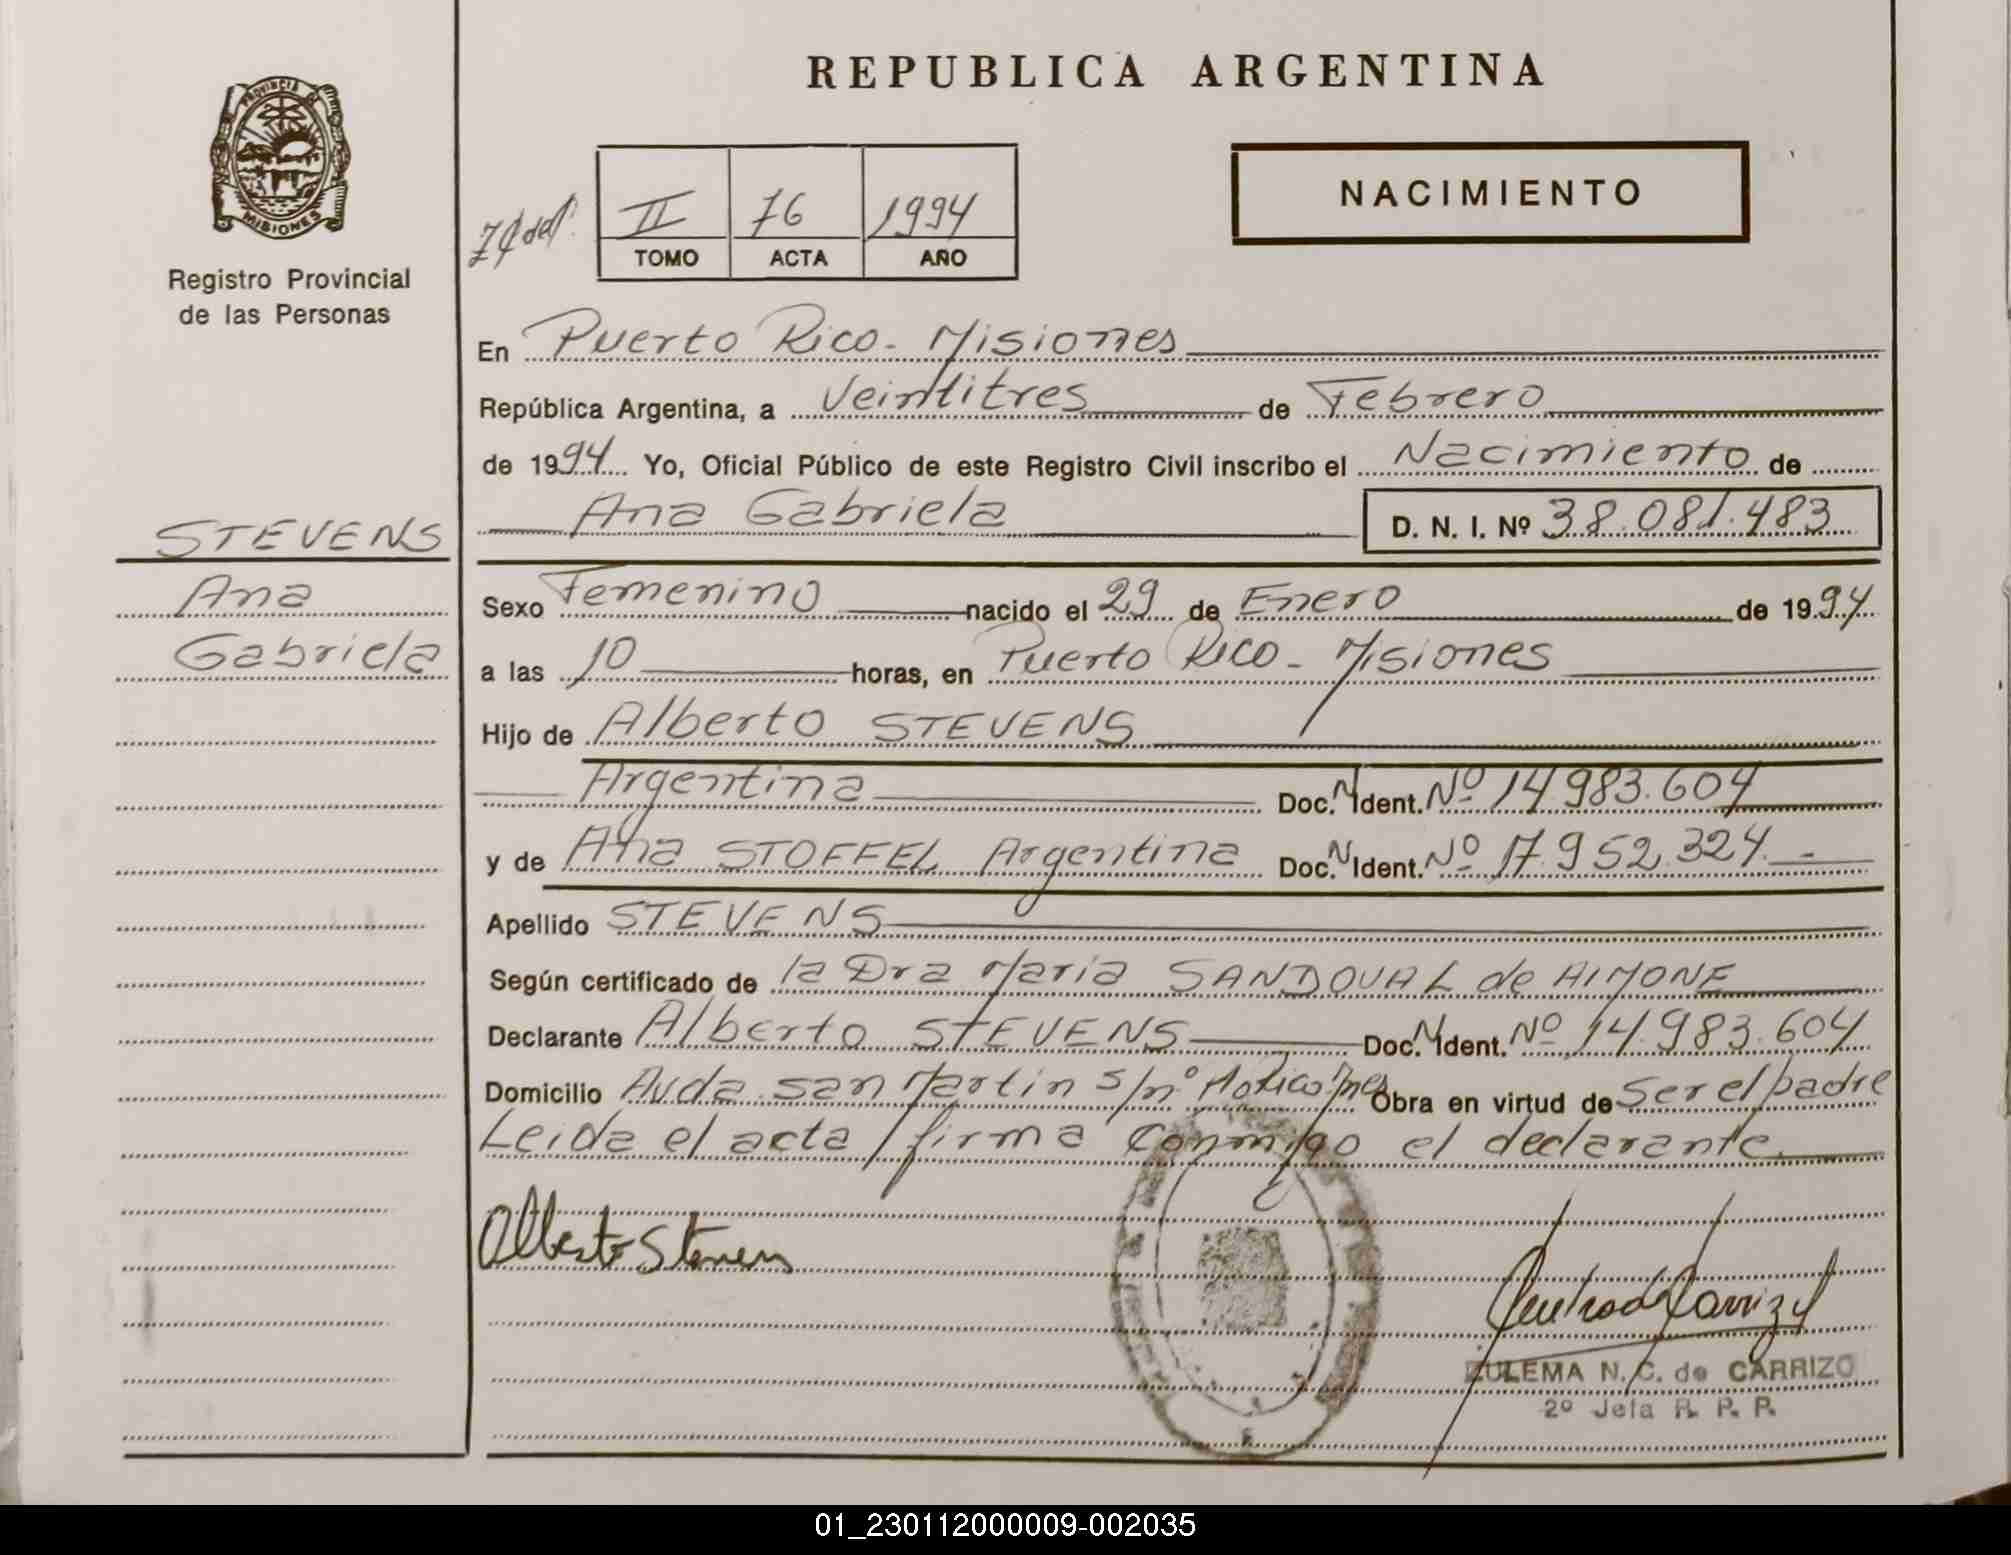 REPUBLICA ARGENTINA
PROVINCIA DE
MISIONES
Registro Provincial
de las Personas
II 76 1994
TOMO ACTA AÑO
NACIMIENTO
En Puerto Rico - Misiones
República Argentina, a Veintitres de Febrero
de 1994 Yo, Oficial Público de este Registro Civil inscribo el Nacimiento de
Ana Gabriela D. N. I. Nº 38.081.483
STEVENS
Ana
Gabriela
Sexo Femenino nacido el 29 de Enero de 1994
a las 10 horas, en Puerto Rico - Misiones
Hijo de Alberto STEVENS
Argentina Doc. N. Ident. Nº 14.983.604
y de Ana STOFFEL Argentina Doc. N. Ident. Nº 17.952.324.-
Apellido STEVENS
Según certificado de la Dra Maria SANDOVAL de AIMONE
Declarante Alberto STEVENS Doc. N. Ident. Nº 14.983.604
Domicilio Avda. San Martin s/nº Obra en virtud de Ser el padre
Leida el acta, firma conmigo el declarante.
Alberto Stevens
ZULEMA N. C. de CARRIZO
2º Jefa R. P. P.
01_230112000009-002035